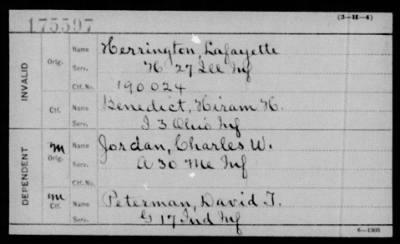 175597 (3-H-4)
INVALID Orig. Name Herrington, Lafayette
Serv. H 27 Ill Inf
Ctf. No. 190024
Ctf. Name Benedict, Hiram H.
Serv. I 3 Ohio Inf
DEPENDENT m Orig. Name Jordan, Charles W.
Serv. A 30 Me Inf
Ctf. No.
m Ctf. Name Peterman, David T.
Serv. G 17 Ind Inf